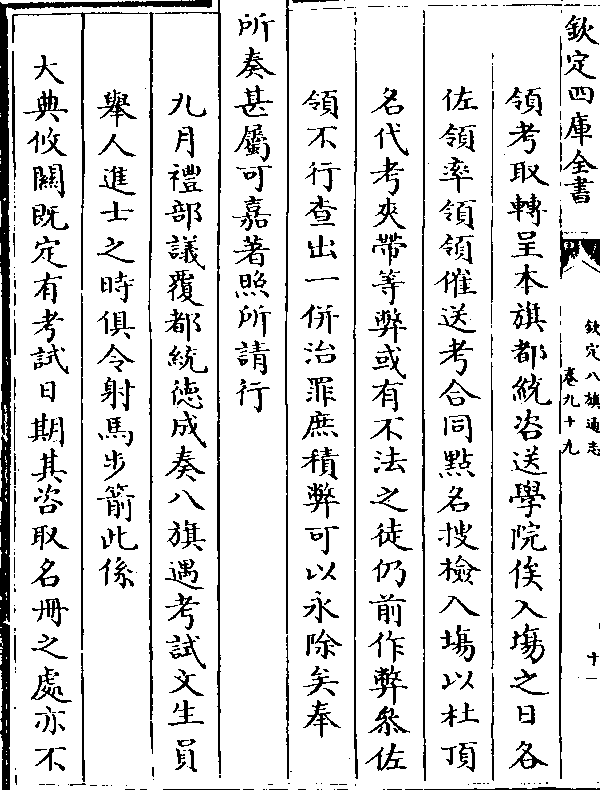 欽定四庫全書
欽定八旗通志
卷九十九
十一
領考取轉呈本旗都統咨送學院俟入塲之日各
佐領率領領催送考合同點名搜檢入塲以杜頂
名代考夾帶等弊或有不法之徒仍前作弊叅佐
領不行查出一併治罪庶積弊可以永除矣奉
所奏甚屬可嘉著照所請行
九月禮部議覆都統徳成奏八旗遇考試文生員
舉人進士之時俱令射馬步箭此係
大典攸關既定有考試日期其咨取名冊之處亦不